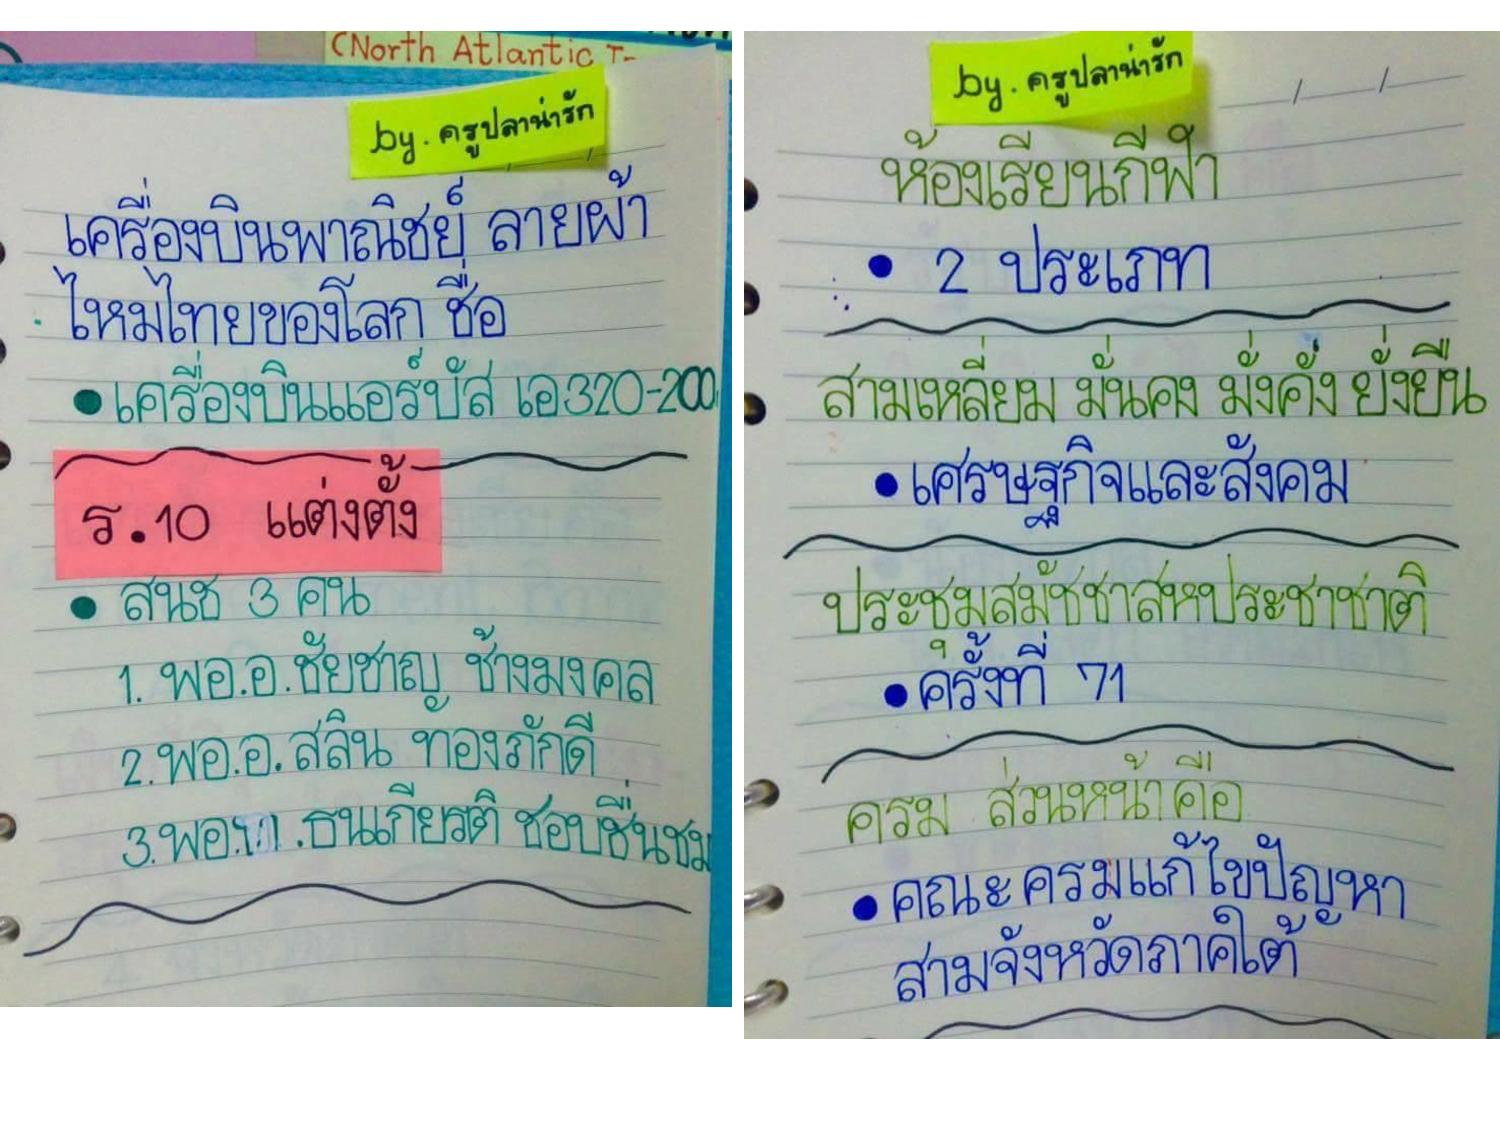 (North Atlantic T
by. ครูปลาน่ารัก
เครื่องบินพาณิชย์ ลายผ้า
ไหมไทยของโลก ชื่อ
• เครื่องบินแอร์บัส เอ320-200
ร.10 แต่งตั้ง
• สนช 3 คน
1. พอ.อ. ชัยชาญ ช้างมงคล
2. พอ.อ. สลิน ทองภักดี
3. พอ. . ธนเกียรติ ชอบชื่นชม
by. ครูปลาน่ารัก
ห้องเรียนกีฬา
• 2 ประเภท
สามเหลี่ยม มั่นคง มั่งคั่ง ยั่งยืน
• เศรษฐกิจและสังคม
ประชุมสมัชชาสหประชาชาติ
• ครั้งที่ 71
ครม ส่วนหน้าคือ
• คณะครมแก้ไขปัญหา
สามจังหวัดภาคใต้